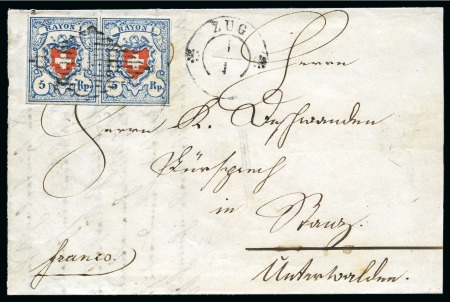 RAYON I RAYON I
5 Rp. 5 Rp.
ZUG
Herrn
Herrn K. Deschwanden
Fürsprech
in
Stanz.
franco.
Unterwalden.